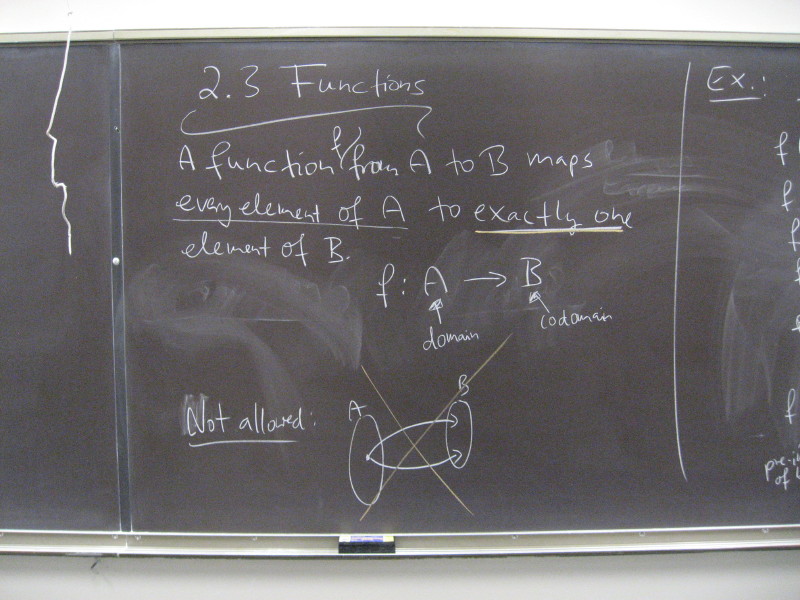 2.3 Functions
A function f from A to B maps
every element of A to exactly one
element of B.
f : A → B
domain
codomain
Not allowed:
A
B
Ex.:
f (
f
f
f
f
of